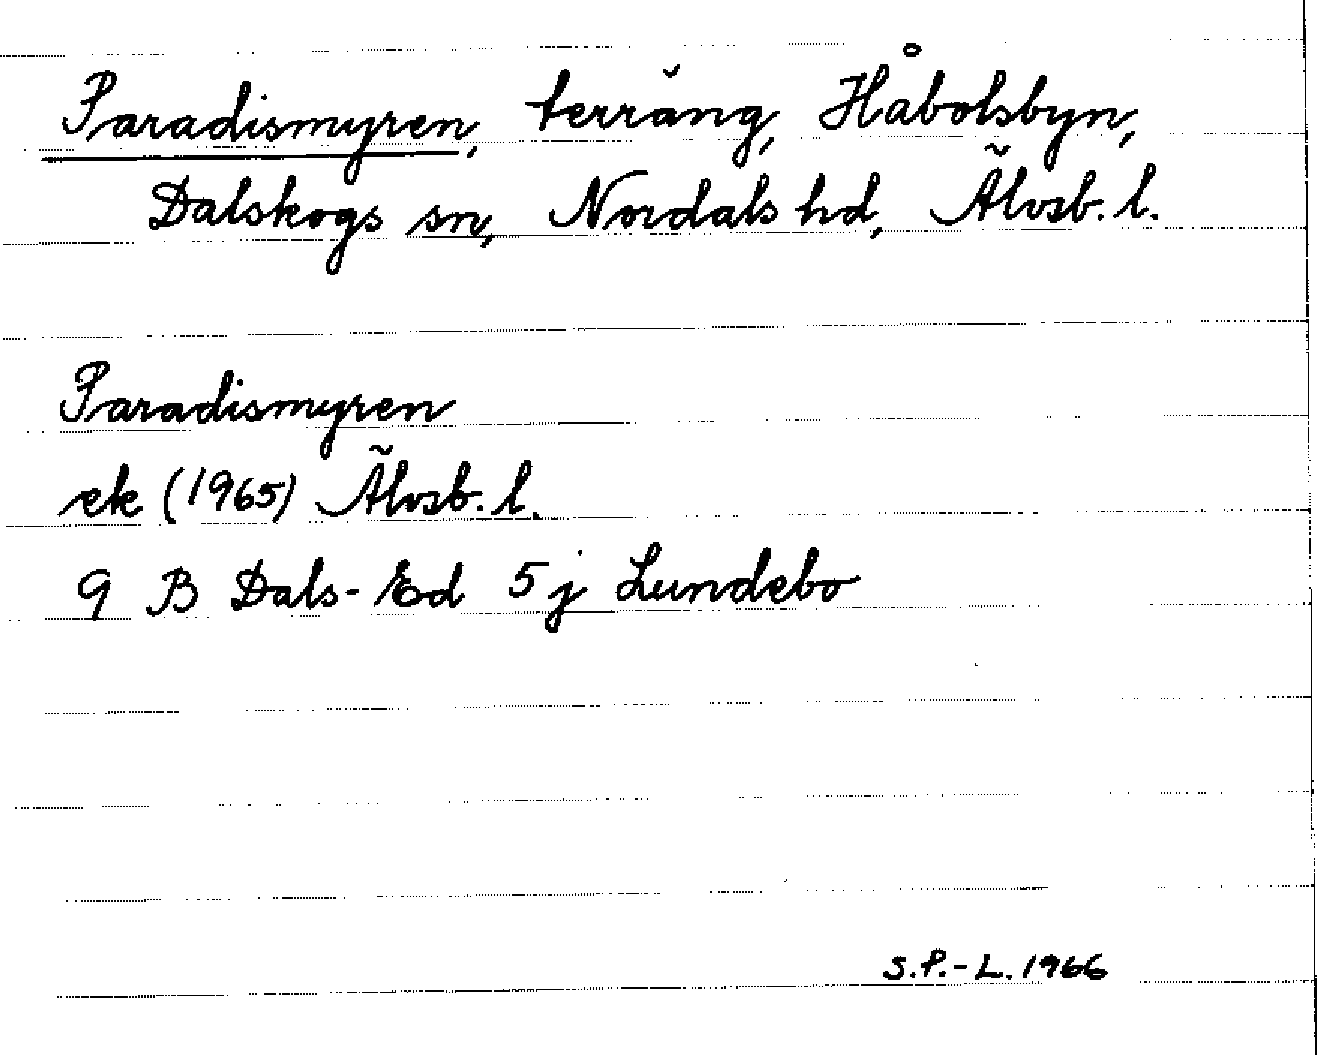 Paradismyren, terräng, Håbolsbyn,
Dalskogs sn, Nordals hd, Älvsb. l.
Paradismyren
ek (1965) Älvsb. l.
9 B Dals-Ed 5 j Lundebo
S.P.-L. 1966